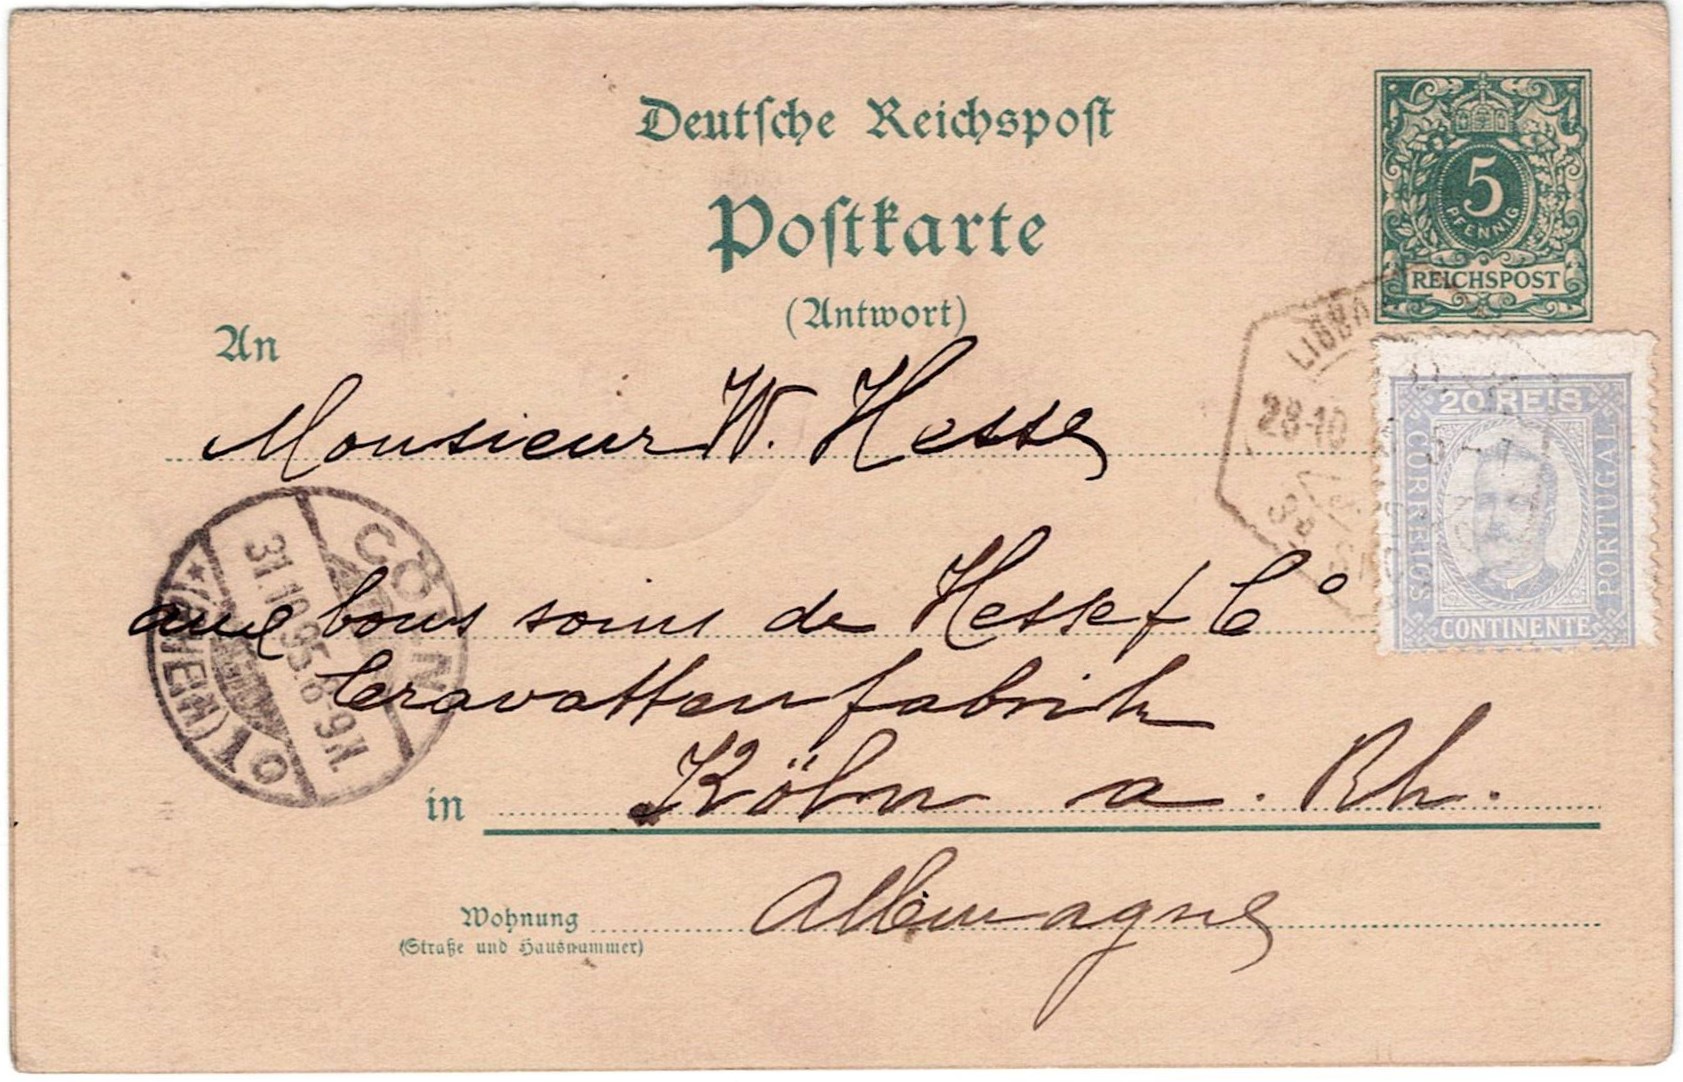 Deutsche Reichspost
Postkarte
(Antwort)
5
PFENNIG
REICHSPOST
An
Monsieur W. Hesse
aux bons soins de Hesse & Cº
Cravattenfabrik
in Köln a. Rh.
Allemagne
Wohnung
(Straße und Hausnummer)
20 REIS
CORREIOS
PORTUGAL
CONTINENTE
28-10
CÖLN
31.10.95.6-9N.
(RHEIN)